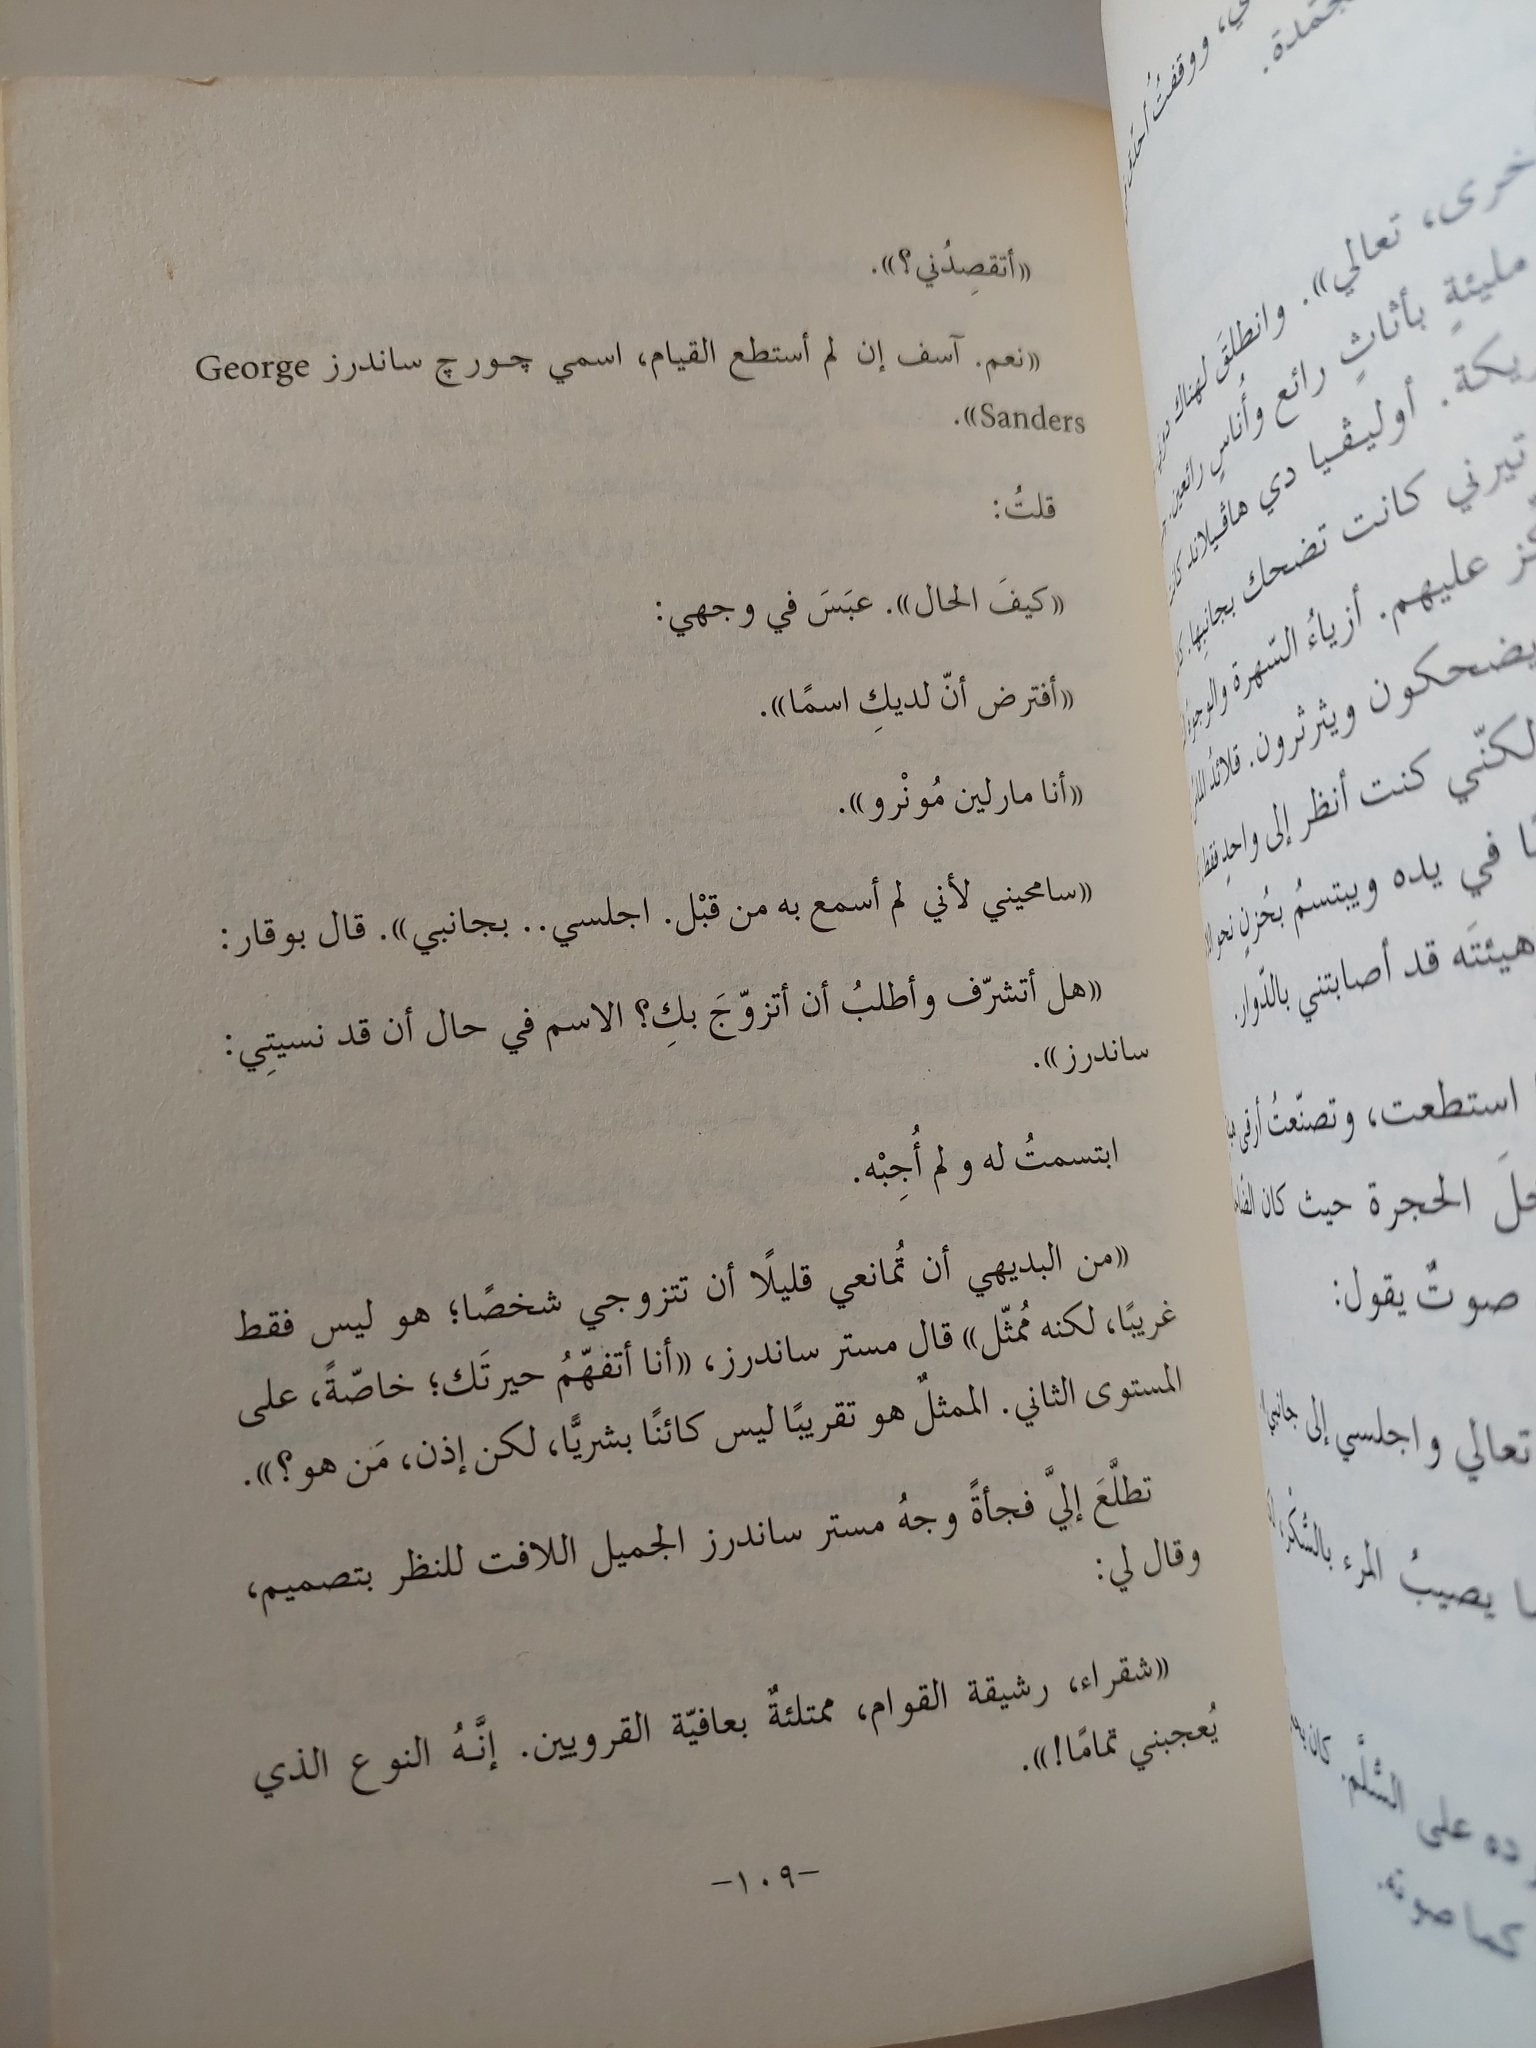 «أتقصِدُني؟».
«نعم. آسف إن لم أستطع القيام، اسمي چورچ ساندرز George
Sanders».
قلتُ:
«كيفَ الحال». عبَسَ في وجهي:
«أفترض أنّ لديكِ اسمًا».
«أنا مارلين مُونْرو».
«سامحيني لأني لم أسمع به من قبْل. اجلسي.. بجانبي». قال بوقار:
«هل أتشرّف وأطلبُ أن أتزوّجَ بكِ؟ الاسم في حال أن قد نسيتِي:
ساندرز».
ابتسمتُ له ولم أُجِبْه.
«من البديهي أن تُمانعي قليلًا أن تتزوجي شخصًا؛ هو ليس فقط
غريبًا، لكنه مُمثّل» قال مستر ساندرز، «أنا أتفهّمُ حيرتَك؛ خاصّةً، على
المستوى الثاني. الممثلٌ هو تقريبًا ليس كائنًا بشريًّا، لكن إذن، مَن هو؟».
تطلَّعَ إليَّ فجأةً وجهُ مستر ساندرز الجميل اللافت للنظر بتصميم،
وقال لي:
«شقراء، رشيقة القوام، ممتلئةٌ بعافيّة القرويين. إنَّهُ النوع الذي
يُعجبني تمامًا!».
-١٠٩-
ووقفتُ
خرى، تعالي». وانطلقَ لهناك
مليئةٍ بأثاثٍ رائع وأُناسٍ رائعين
ريكة. أوليڤيا دي هاڤيلاند
تيرني كانت تضحك بجانبها.
عليهم. أزياءُ السّهرة
يضحكون ويثرثرون. قلائدُ
لكنّي كنت أنظر إلى واحدٍ فقط
في يده ويبتسمُ بحُزنٍ نحو
هيئتَه قد أصابتني بالدّوار.
استطعت، وتصنّعتُ
الحجرة حيث كان
صوتٌ يقول:
تعالي واجلسي إلى
يصيبُ المرء بالسّكْر
على السُّلَّم. كان